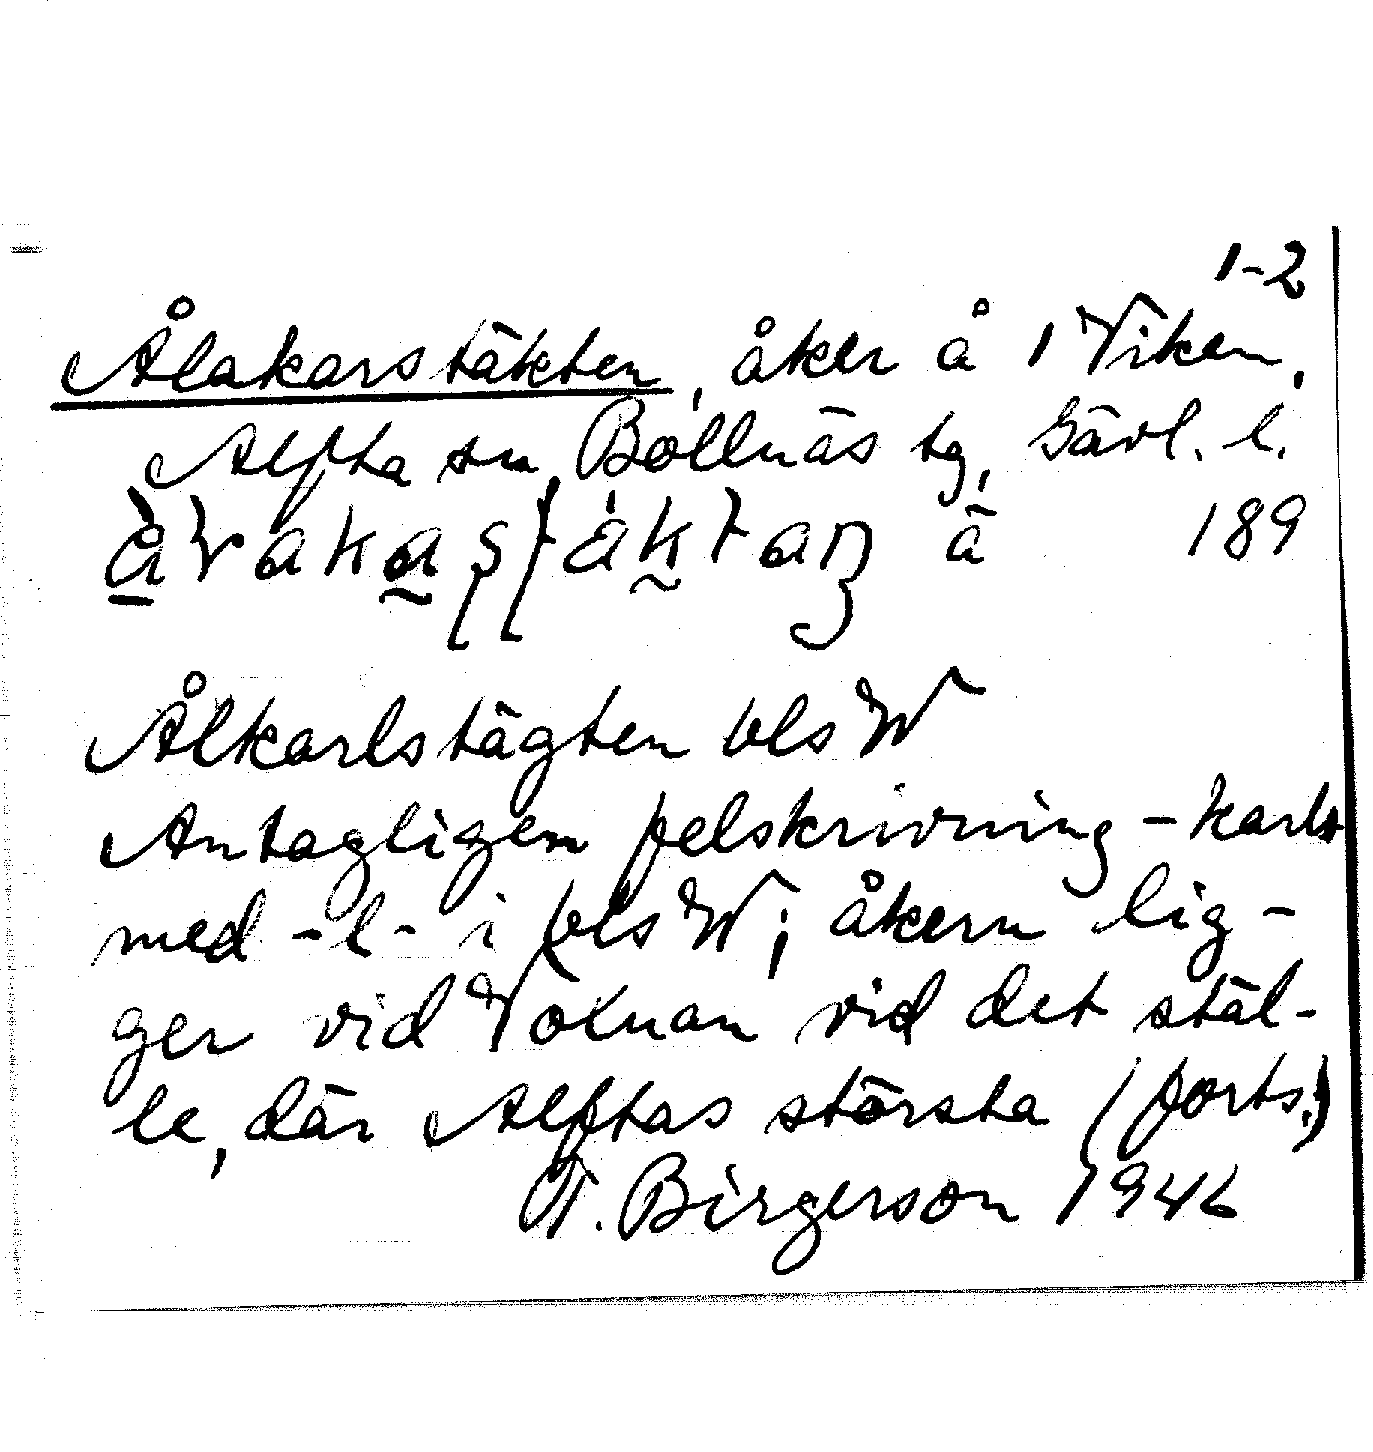 1-2
Ålakarstäkten, åker å 1 Viken,
Alfta sn, Bollnäs tg, Gävl. l.
å 189
Ålkarlstägten bls W
Antagligen felskrivning -karls
med -l- i bls W; åkern lig-
ger vid Voxnan vid det stäl-
le, där Alftas största (forts.)
T. Birgerson 1946